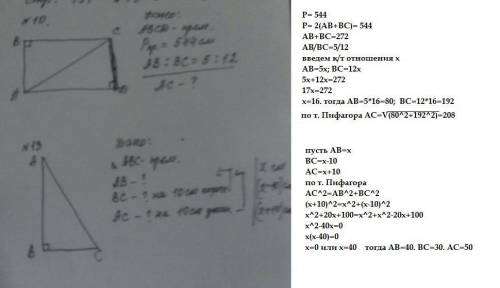 №10.
Дано:
ABCD - прям.
Pпр. = 544 см
AB : BC = 5 : 12
AC - ?
B
C
A
D
№13
Дано:
ABC - прям.
AB - ?
BC - ? на 10см
AC - ? на 10см
A
B
C
P= 544
P= 2(AB+BC)= 544
AB+BC=272
AB/BC=5/12
введем к/т отношения x
AB=5x; BC=12x
5x+12x=272
17x=272
x=16. тогда AB=5*16=80; BC=12*16=192
по т. Пифагора AC=√(80^2+192^2)=208
пусть AB=x
BC=x-10
AC=x+10
по т. Пифагора
AC^2=AB^2+BC^2
(x+10)^2=x^2+(x-10)^2
x^2+20x+100=x^2+x^2-20x+100
x^2-40x=0
x(x-40)=0
x=0 или x=40 тогда AB=40. BC=30. AC=50